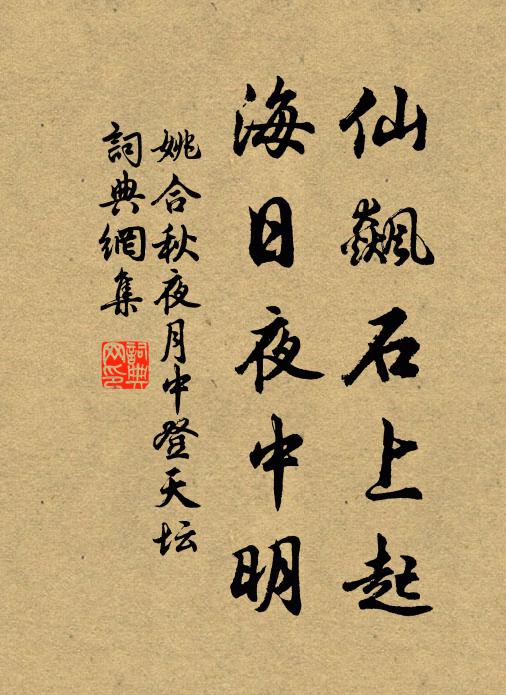 仙飆石上起
海日夜中明
姚合秋夜月中登天坛
詞典網集
詞典網印